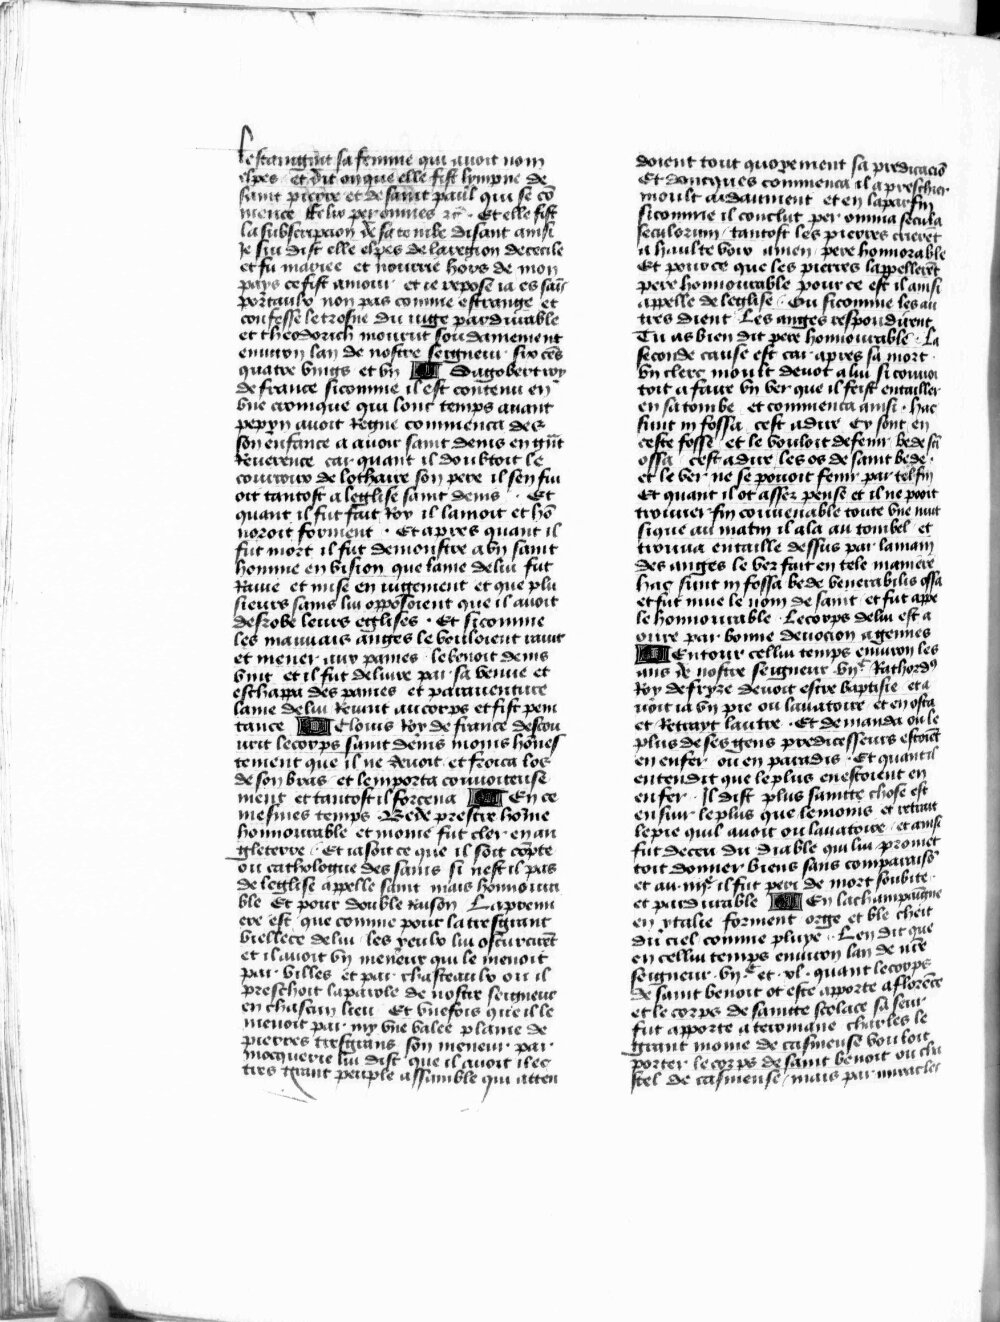 sa femme qui avoit nom
elpes et dit on que elle fist lympne de
saint pierre et de saint paul qui se cõ
mence felix per omnes zc̃ . Et elle fist
la subscripcion de sa tombe disant ainsi
Je sui dist elle elpes de la region de cecile
et fu mariee et nourrie hors de mon
pays ce fist amour et ie repose ia es sais
portaulx non pas comme estrange et
confesse le trosne du iuge pardurable
et theodorich mourut soudainement
environ lan de nostre seigneur six cẽs
quatre vings et vn Dagobert roy
de france sicomme il est contenu en
vne cronique qui lonc temps avant
pepyn avoit Regne commenca des
son enfance a avoir saint denis en grãt
Reverence car quant il doubtoit le
courroux de lothaire son pere il sen fui
oit tantost a leglise saint denis . Et
quant il fut fait Roy il lamoit et hõ
noroit forment . Et apres quant il
fut mort il fut demonstre a vn saint
homme en vision que lame de lui fut
Ravie et mise en iugement et que plu
sieurs sains lui opposoient que il avoit
desrobe leurs eglises . Et sicomme
les mauvais anges le vouloient ravir
et mener aux paines le benoit denis
vint et il fut delivre par sa venue et
eschappa des paines et paraventure
lame de lui Revint au corps et fist peni
tance Clovis Roy de france descou
vrit le corps saint denis moins hõnes
tement que il ne devoit et froica los
de son bras et lemporta convoiteuse
ment et tantost il forcena En ce
mesmes temps . Bede prestre home
honnourable et moine fut cler en an
gleterre . Et ia soit ce que il soit cõpte
ou cathologue des sains si nest il pas
de leglise appelle saint mais honnoura
ble Et pour double raison . La premi
ere est que comme pour la tresgrant
viellece de lui les yeulx lui oscurcirẽt
et il avoit vn meneur qui le menoit
par villes et par chasteaulx ou il
preschoit la parole de nostre seigneur
en chascun lieu Et vnefois que il le
menoit par my vne valee plaine de
pierres tresgrans son meneur par
mocquerie lui dist que il avoit ilec
tres grant peuple assamble qui atten
doient tout quoyement sa predicaciõ
Et doncques commenca il a preschier
moult ardaument et en la par fin
sicomme il conclut per omnia secula
seculorum tantost les pierres crierẽt
a haulte voix amen pere honnorable
Et pour ce que les pierres lappellerẽt
pere honnourable pour ce est il ainsi
appelle de leglise . Ou sicomme les au
tres dient . Les anges respondirent
Tu as bien dit pere honnourable . La
seconde cause est car apres sa mort .
vn clerc moult devot a lui si convoi
toit a faire vn ver que il feist entailler
en sa tombe et commenca ainsi . hac
sunt in fossa cest a dire Cy sont en
ceste fosse et le vouloit defenir bede sci
ossa cest a dire les os de saint bede .
et le ver ne se povoit fenir par tel fin
Et quant il ot assez pense et il ne pooit
trouver fin convenable toute vne nuit
sique au matin il ala au tombel et
trouva entaille dessus par la main
des anges le ver fait en tele maniere
hac sunt in fossa bede venerabilis ossa
et fut mue le nom de saint et fut appe
le honnourable . Le corps de lui est a
oure par bonne devocion a gennes
Entour cellui temps environ les
ans de nostre seigneur . vijᶜ Rathordꝰ
Roy de fryze devoit estre baptisie et a
voit ia vn pie ou lavatoire et en osta
et Retrayt lautre . Et demanda ou le
plus de ses gens predicesseurs estoiẽt
en enfer ou en paradis . Et quant il
entendit que le plus en estoient en
enfer . Il dist plus saintte chose est
ensuir le plus que le moins et retrait
le pie quil avoit ou lavatoire et ainsi
fut deceu du diable qui lui promet
toit donner biens sans comparaisõ
et au . iiijᵉ il fut peri de mort soubite .
et pardurable En la champaigne
en ytalie forment orge et ble cheit
du ciel comme pluye . Len dit que
en cellui temps environ lan de nr̃e
seigneur . vijᶜ et . xl . quant le corps
de saint benoit ot este apporte a florẽce
et le corps de saintte scolace sa seur
fut apporte a cenomane charles le
grant moine de casineuse vouloit
porter le corps de saint benoit ou cha
stel de casineuse mais par miracles